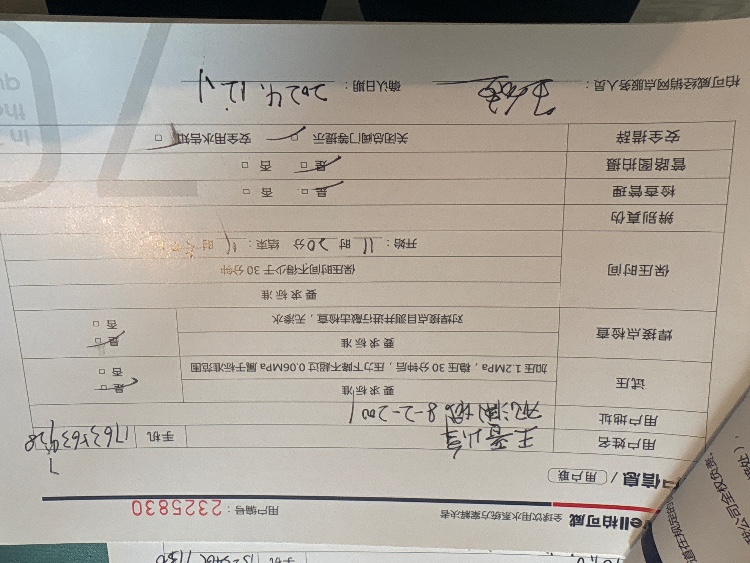 ell柏可威 全球饮用水系统方案解决者 用户编号：2325830
信息 / 用户联
用户姓名 手机
用户地址 8-2-2001
试压 要求标准 是
加压1.2MPa，稳压30分钟后，压力下降不超过0.06MPa属于标准范围 否
焊接点检查 要求标准 是
对焊接点目测并进行敲击检查，无渗水 否
保压时间 要求标准
保压时间不得少于30分钟
开始：11时20分 结束：11时
辨别真伪
检查管理 是 否
管路图拍摄 是 否
安全措辞 关闭总阀门等提示 安全用水告知
柏可威经销网点服务人员： 确认日期：2024.12.1